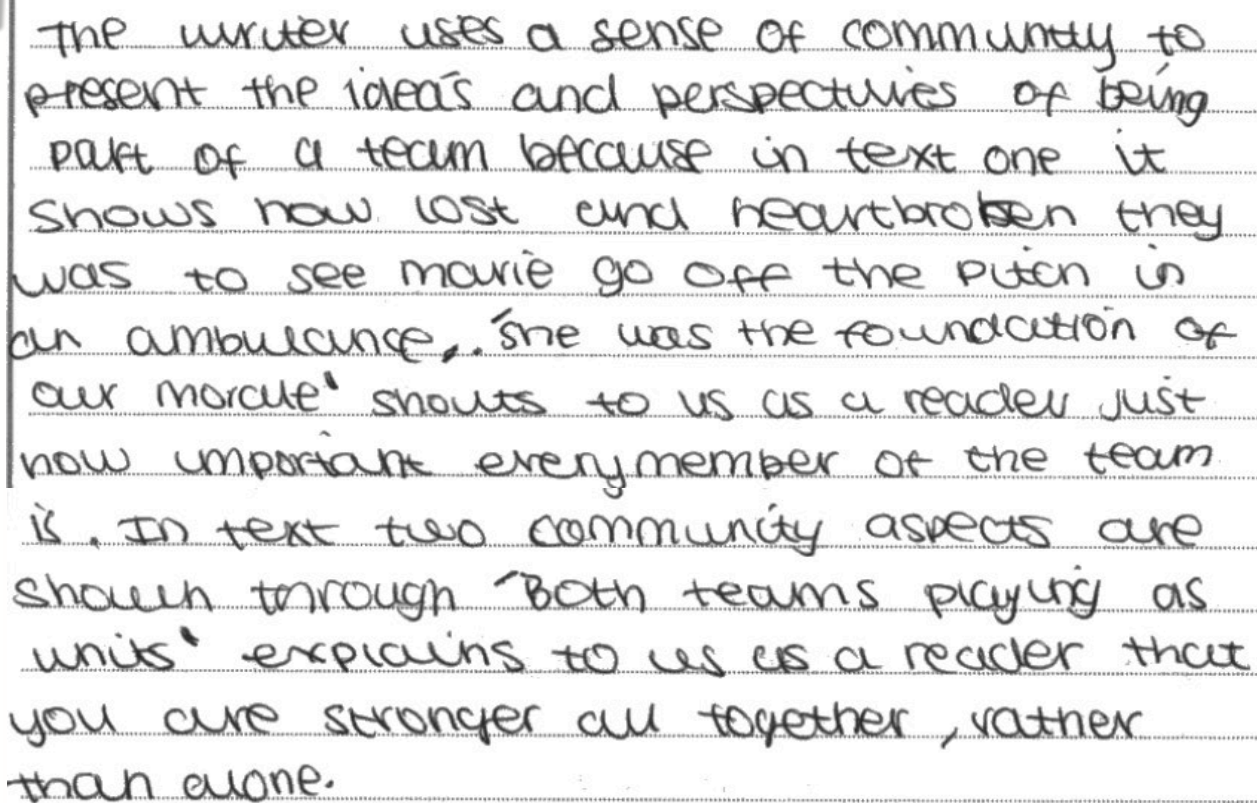 The writer uses a sense of community to
present the ideas and perspectives of being
part of a team because in text one it
shows how lost and heartbroken they
was to see marie go off the pitch in
an ambulance, 'She was the foundation of
our morale' shouts to us as a reader just
how important every member of the team
is. In text two community aspects are
shown through 'Both teams playing as
units' explains to us as a reader that
you are stronger all together, rather
than alone.